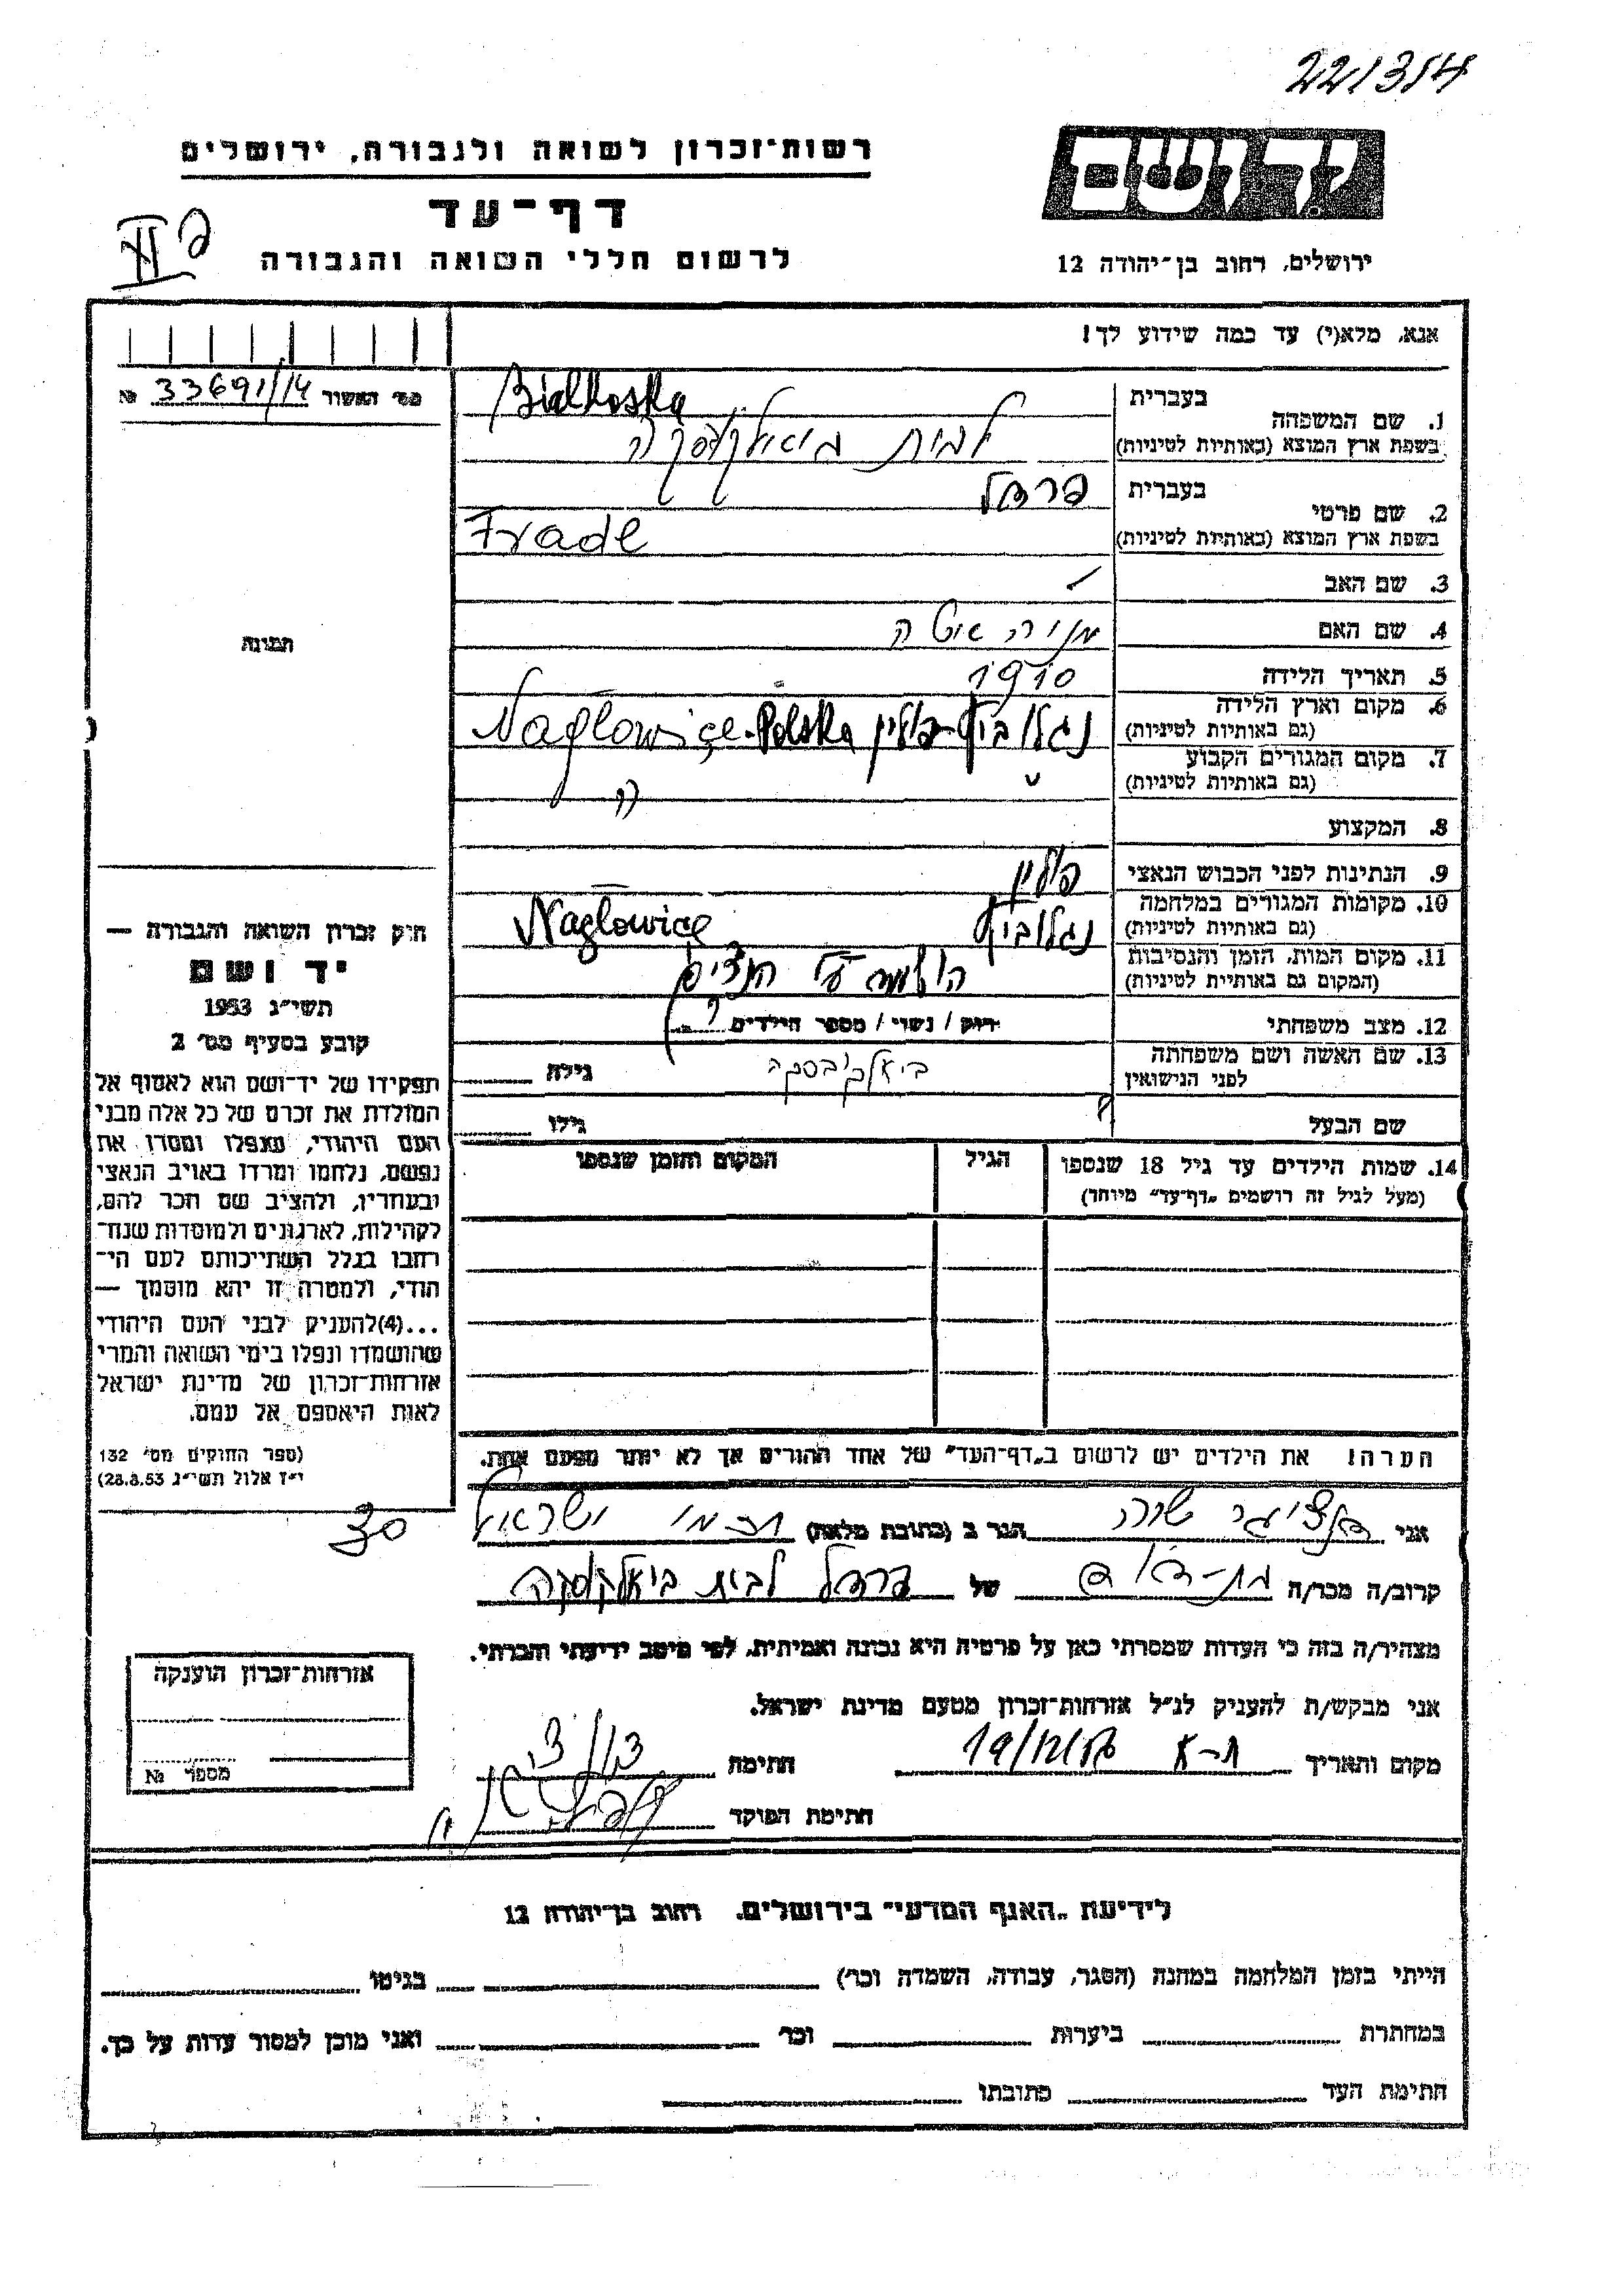 221354
יד ושם
רשות־זכרון לשואה ולגבורה, ירושלים
דף־עד
לרשום חללי השואה והגבורה
ירושלים, רחוב בן־יהודה 12
אנא, מלא(י) עד כמה שידוע לך!
מס׳ האשור 33691/14 №
1. שם המשפחה
בעברית
Bialkoska
בשפת ארץ המוצא (באותיות לטיניות)
לבית ביאלקוסקה
2. שם פרטי
בעברית
פרדל
בשפת ארץ המוצא (באותיות לטיניות)
Fradl
3. שם האב
4. שם האם
5. תאריך הלידה 1910
6. מקום וארץ הלידה
(גם באותיות לטיניות)
נגלוביץ פולין Naglowice-Polska
7. מקום המגורים הקבוע
(גם באותיות לטיניות)
8. המקצוע
9. הנתינות לפני הכבוש הנאצי פולין
10. מקומות המגורים במלחמה
(גם באותיות לטיניות)
נגלוביץ Naglowice
11. מקום המות, הזמן והנסיבות
(המקום גם באותיית לטיניות)
על הנצים
12. מצב משפחתי רווק / נשוי / מספר הילדים ?
13. שם האשה ושם משפחתה
לפני הנישואין
ביאלקובסקה גילה
שם הבעל ? גילו
14. שמות הילדים עד גיל 18 שנספו
(מעל לגיל זה רושמים „דף־עד״ מיוחד)
הגיל
המקום והזמן שנספו
הערה! את הילדים יש לרשום ב„דף־העד״ של אחד ההורים אך לא יותר מפעם אחת.
תמונה
חוק זכרון השואה והגבורה —
יד ושם
תשי״ג 1953
קובע בסעיף מס׳ 2
תפקידו של יד־ושם הוא לאסוף אל
המולדת את זכרם של כל אלה מבני
העם היהודי, שנפלו ומסרו את
נפשם, נלחמו ומרדו באויב הנאצי
ובעוזריו, ולהציב שם וזכר להם,
לקהילות, לארגונים ולמוסדות שנח־
רחבו בגלל השתייכותם לעם הי־
הודי, ולמטרה זו יהא מוסמך —
...(4)להעניק לבני העם היהודי
שהושמדו ונפלו בימי השואה והמרי
אזרחות־זכרון של מדינת ישראל
לאות היאספם אל עמם.
(ספר החוקים מס׳ 132
י״ז אלול תשי״ג 28.8.53)
30
אני שורה הגר ב (כתובת מלאה) ישראל
קרוב/ה מכר/ה בת-דוד של פרדל לבית ביאלקוסקה
מצהיר/ה בזה כי העדות שמסרתי כאן על פרטיה היא נכונה ואמיתית, לפי מיטב ידיעתי והכרתי.
אני מבקש/ת להעניק לנ״ל אזרחות־זכרון מטעם מדינת ישראל.
מקום ותאריך ת-א חתימה
חתימת הפוקד
אזרחות־זכרון הוענקה
מספר №
לידיעת „האגף המדעי״ בירושלים, רחוב בן־יהודה 12
הייתי בזמן המלחמה במחנה (הסגר, עבודה, השמדה וכו׳) בגיטו
במחתרת ביערות וכו׳ ואני מוכן למסור עדות על כך.
חתימת העד כתובתו